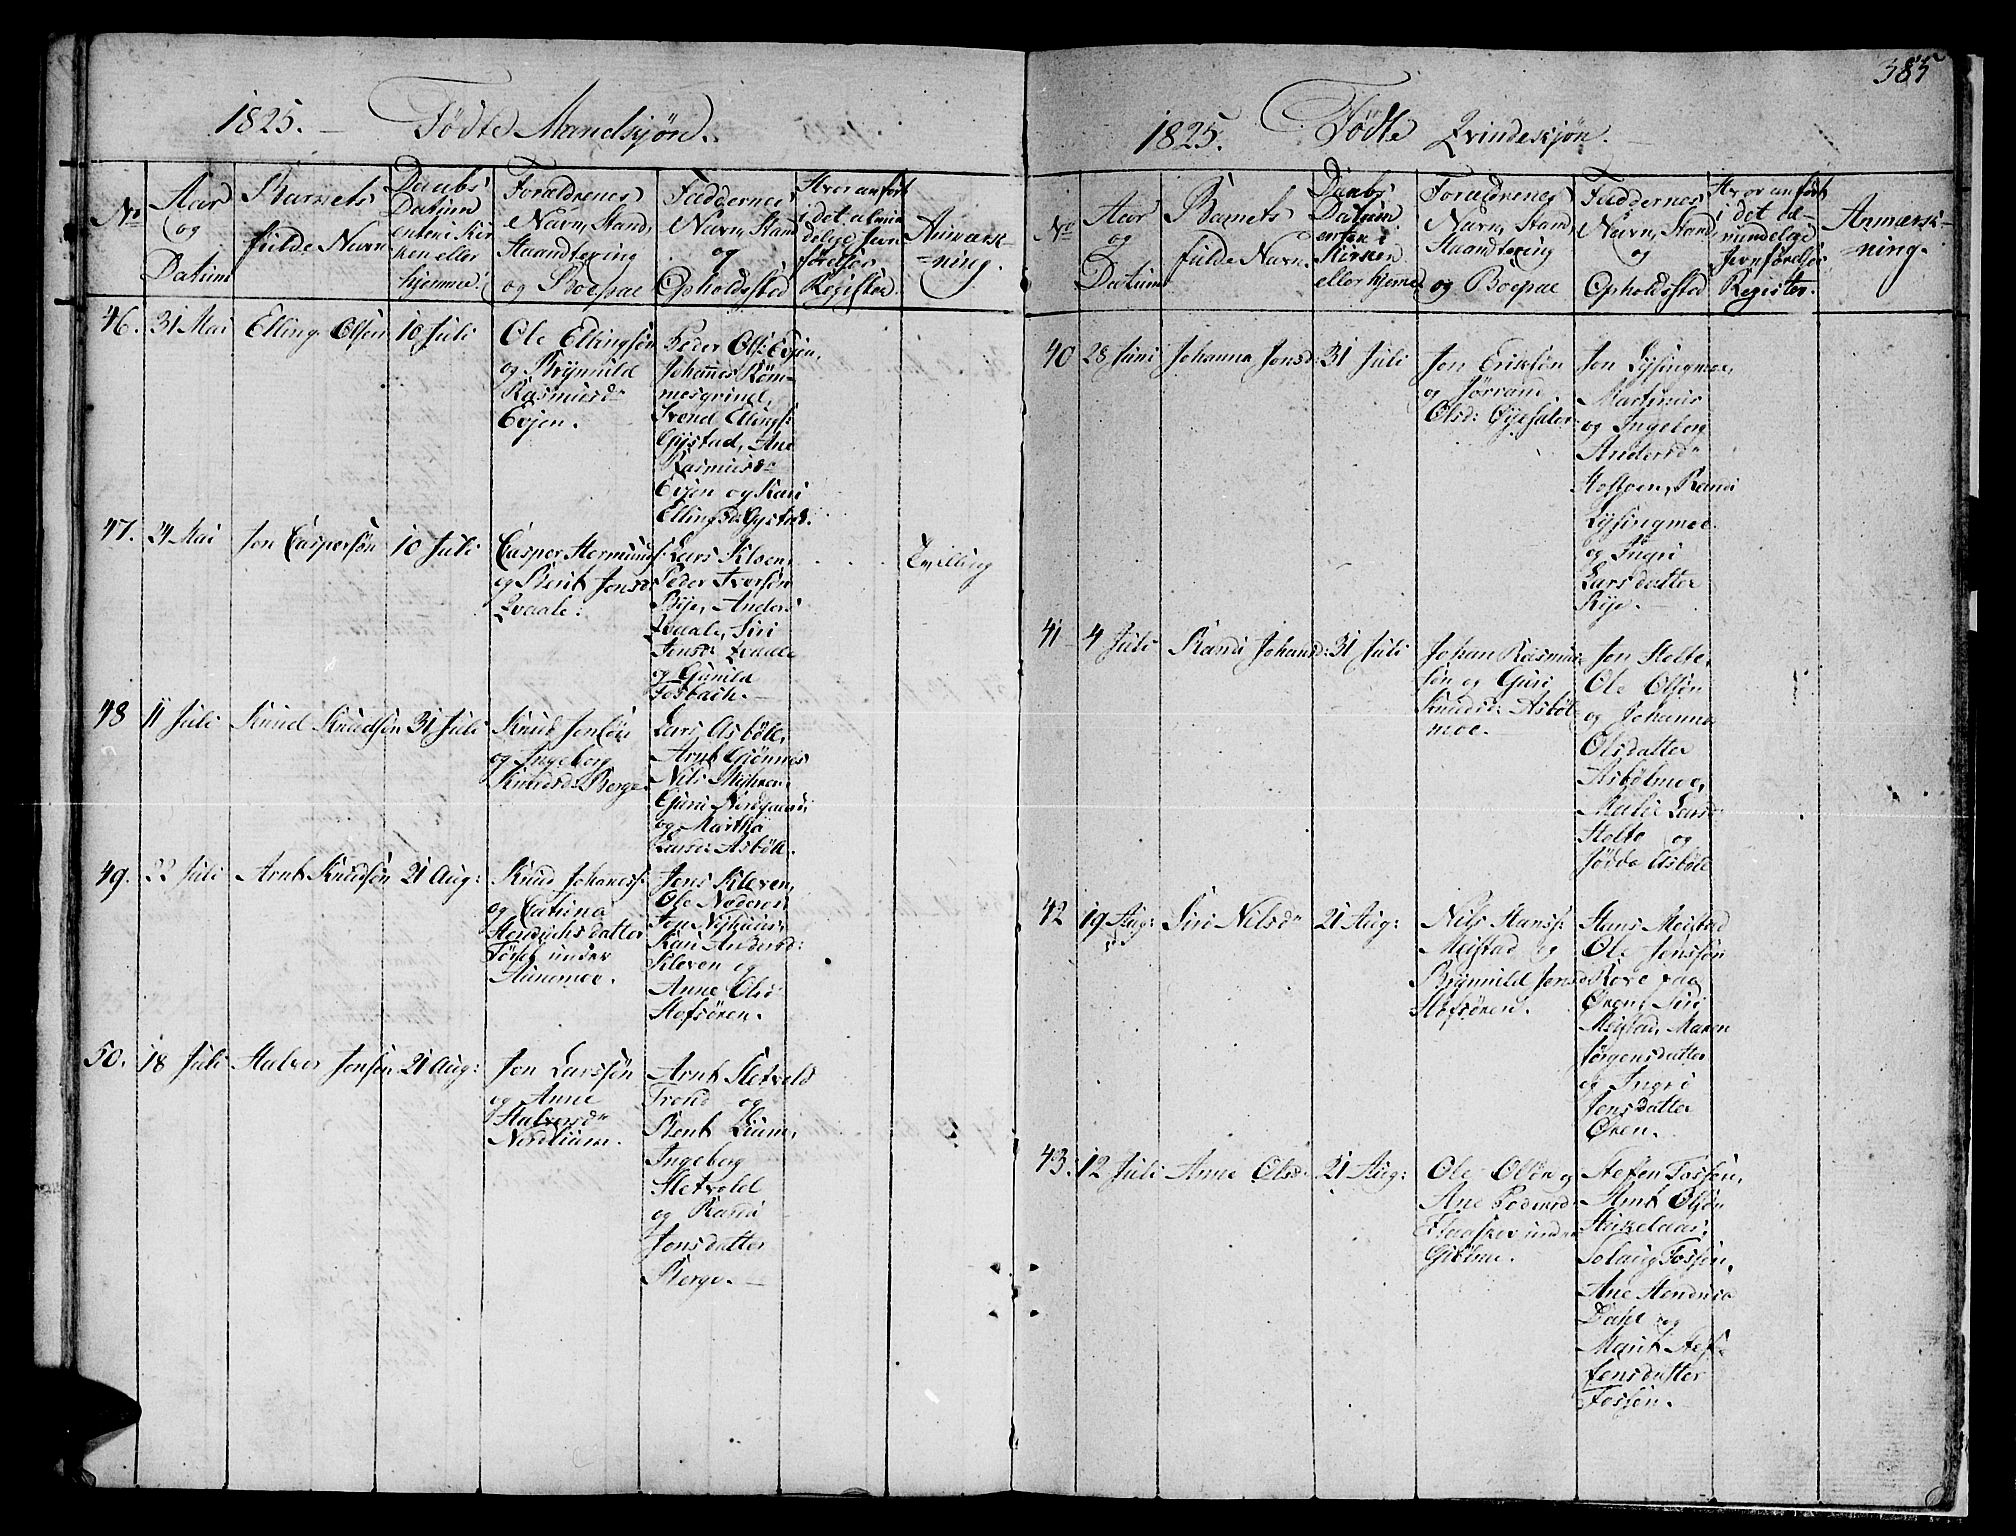 385
1825. — Födte Mandskjön.
No
Aar
og
Datum
Barnets
fulde Navn
Daabs
Datum
enten i Kir
ken eller
hjemme.
Forældrenes
Navn, Stand,
Haandtering
og Boepæl
Faddernes
Navn, Stand
og
Opholdssted
Hvor anfört
i det almin
delige Jevn
förelses
Register.
Anmærk-
ning.
46. 31 Mai Elling Olsön 10 Juli
Ole Ellingsön
og Brynnild
Rasmusdr
Evjen.
Peder Ols: Evjen,
Johannes Röm-
mesgrind,
Svend Ellings:
Gystad, Ane
Rasmusdr
Evjen og Kari
Ellingsd: Gystad.
47. 24 Mai Jon Caspersön 10 Juli
Casper Hermunds:
og Berit Jonsd:
Qvaale.
Lars Kloen,
Peder Iversön
Bye, Anders
Qvaale, Siri
Jonsd: Qvaale
og Gunild
Fosbach.
Tvilling
48 11 Juli Knud Knudsön 31 Juli
Knud Jonsön
og Ingeberg
Knudsd: Berge.
Lars Asböll,
Arnt Grönnes
Nils
Guri
og Martha
Larsd: Asböll.
49. 22 Juli Arnt Knudsön 21 Aug:
Knud Johaness:
og Catrina
Hendrichsdatter
under
Hunemoe.
Jens Kleven,
Ole
Jon Nyhuus,
Kari Andersd:
Kleven og
Anne Olsd
Hofsören.
50. 18 Juli Halvor Jonsön 21 Aug:
Jon Larssön
og Anne
Halvorsdr
Nordlium.
Arnt Sletvold
Trond og
Berit Lium,
Ingeberg
Sletvold
og Randi
Jonsdatter
Berge. —
1825. Födte Qvindeskjön.
No
Aar
og
Datum
Barnets
fulde Navn
Daabs
Datum
enten i
Kirken
eller hjemme
Forældrenes
Navn, Stand,
Haandtering
og Boepæl
Faddernes
Navn, Stand
og
Opholdssted
Hvor anfört
i det al-
mindelige
Jevnförelses
Register.
Anmærk-
ning.
40 28 Juni Johanna Jonsd: 31 Juli
Jon Eriksön
og
Olsd:
Jon Lysingmoe,
Martinus
og Ingeberg
Andersdr
Holtoen, Randi
Lysingmoe
og Ingri
Larsdatter
Rye. —
41 4 Juli Randi Johansd: 31 Juli
Johan Rasmus
sön og Guri
Knudsd: Asböl
moe.
Jon Holte,
Ole Olsön
og Johanna
Olsdatter
Asbölmoe,
Malie Larsd
Holte og
Jödda Asböll
42 19 Aug: Siri Nilsdr 21 Aug:
Nils Hanss:
Meistad og
Brynnild Jensd
Hofsören.
Hans Meistad
Ole Jenssön
Kore paa
Ören, Siri
Meistad, Maren
Jörgensdatter
og Ingri
Jensdatter
Ören.
43. 12 Juli Anne Olsd: 21 Aug:
Ole Olsön og
Ane Pedersd
under
Gisöien.
Steffen Fossön,
Arnt Olsön
Solaug Fossön,
Ane
Dahl og
Marit Stef-
fensdatter
Fossön.